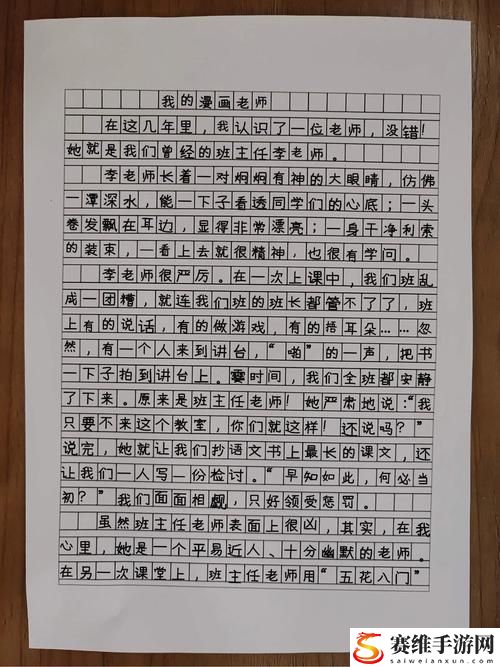 我的漫画老师
在这几年里，我认识了一位老师，没错！
她就是我们曾经的班主任李老师。
李老师长着一对炯炯有神的大眼睛，仿佛
一潭深水，能一下子看透同学们的心底；一头
卷发飘在耳边，显得非常漂亮；一身干净利索
的装束，一看上去就很精神，也很有学问。
李老师很严厉。在一次上课中，我们班乱
成一团糟，就连我们班的班长都管不了了，班
上有的说话，有的做游戏，有的捂耳朵……忽
然，有一个人来到讲台，“啪”的一声，把书
一下子拍到讲台上。霎时间，我们全班都安静
了下来。原来是班主任老师！她严肃地说：“我
只要不来这个教室，你们就这样！还说吗？”
说完，她就让我们抄语文书上最长的课文，还
让我们一人写一份检讨。“早知如此，何必当
初？”我们面面相觑，只好领受惩罚。
虽然班主任老师表面上很凶，其实，在我
心里，她是一个平易近人、十分幽默的老师。
在另一次课堂上，班主任老师用“五花八门”
赛维手游网
saiweilanxun.com